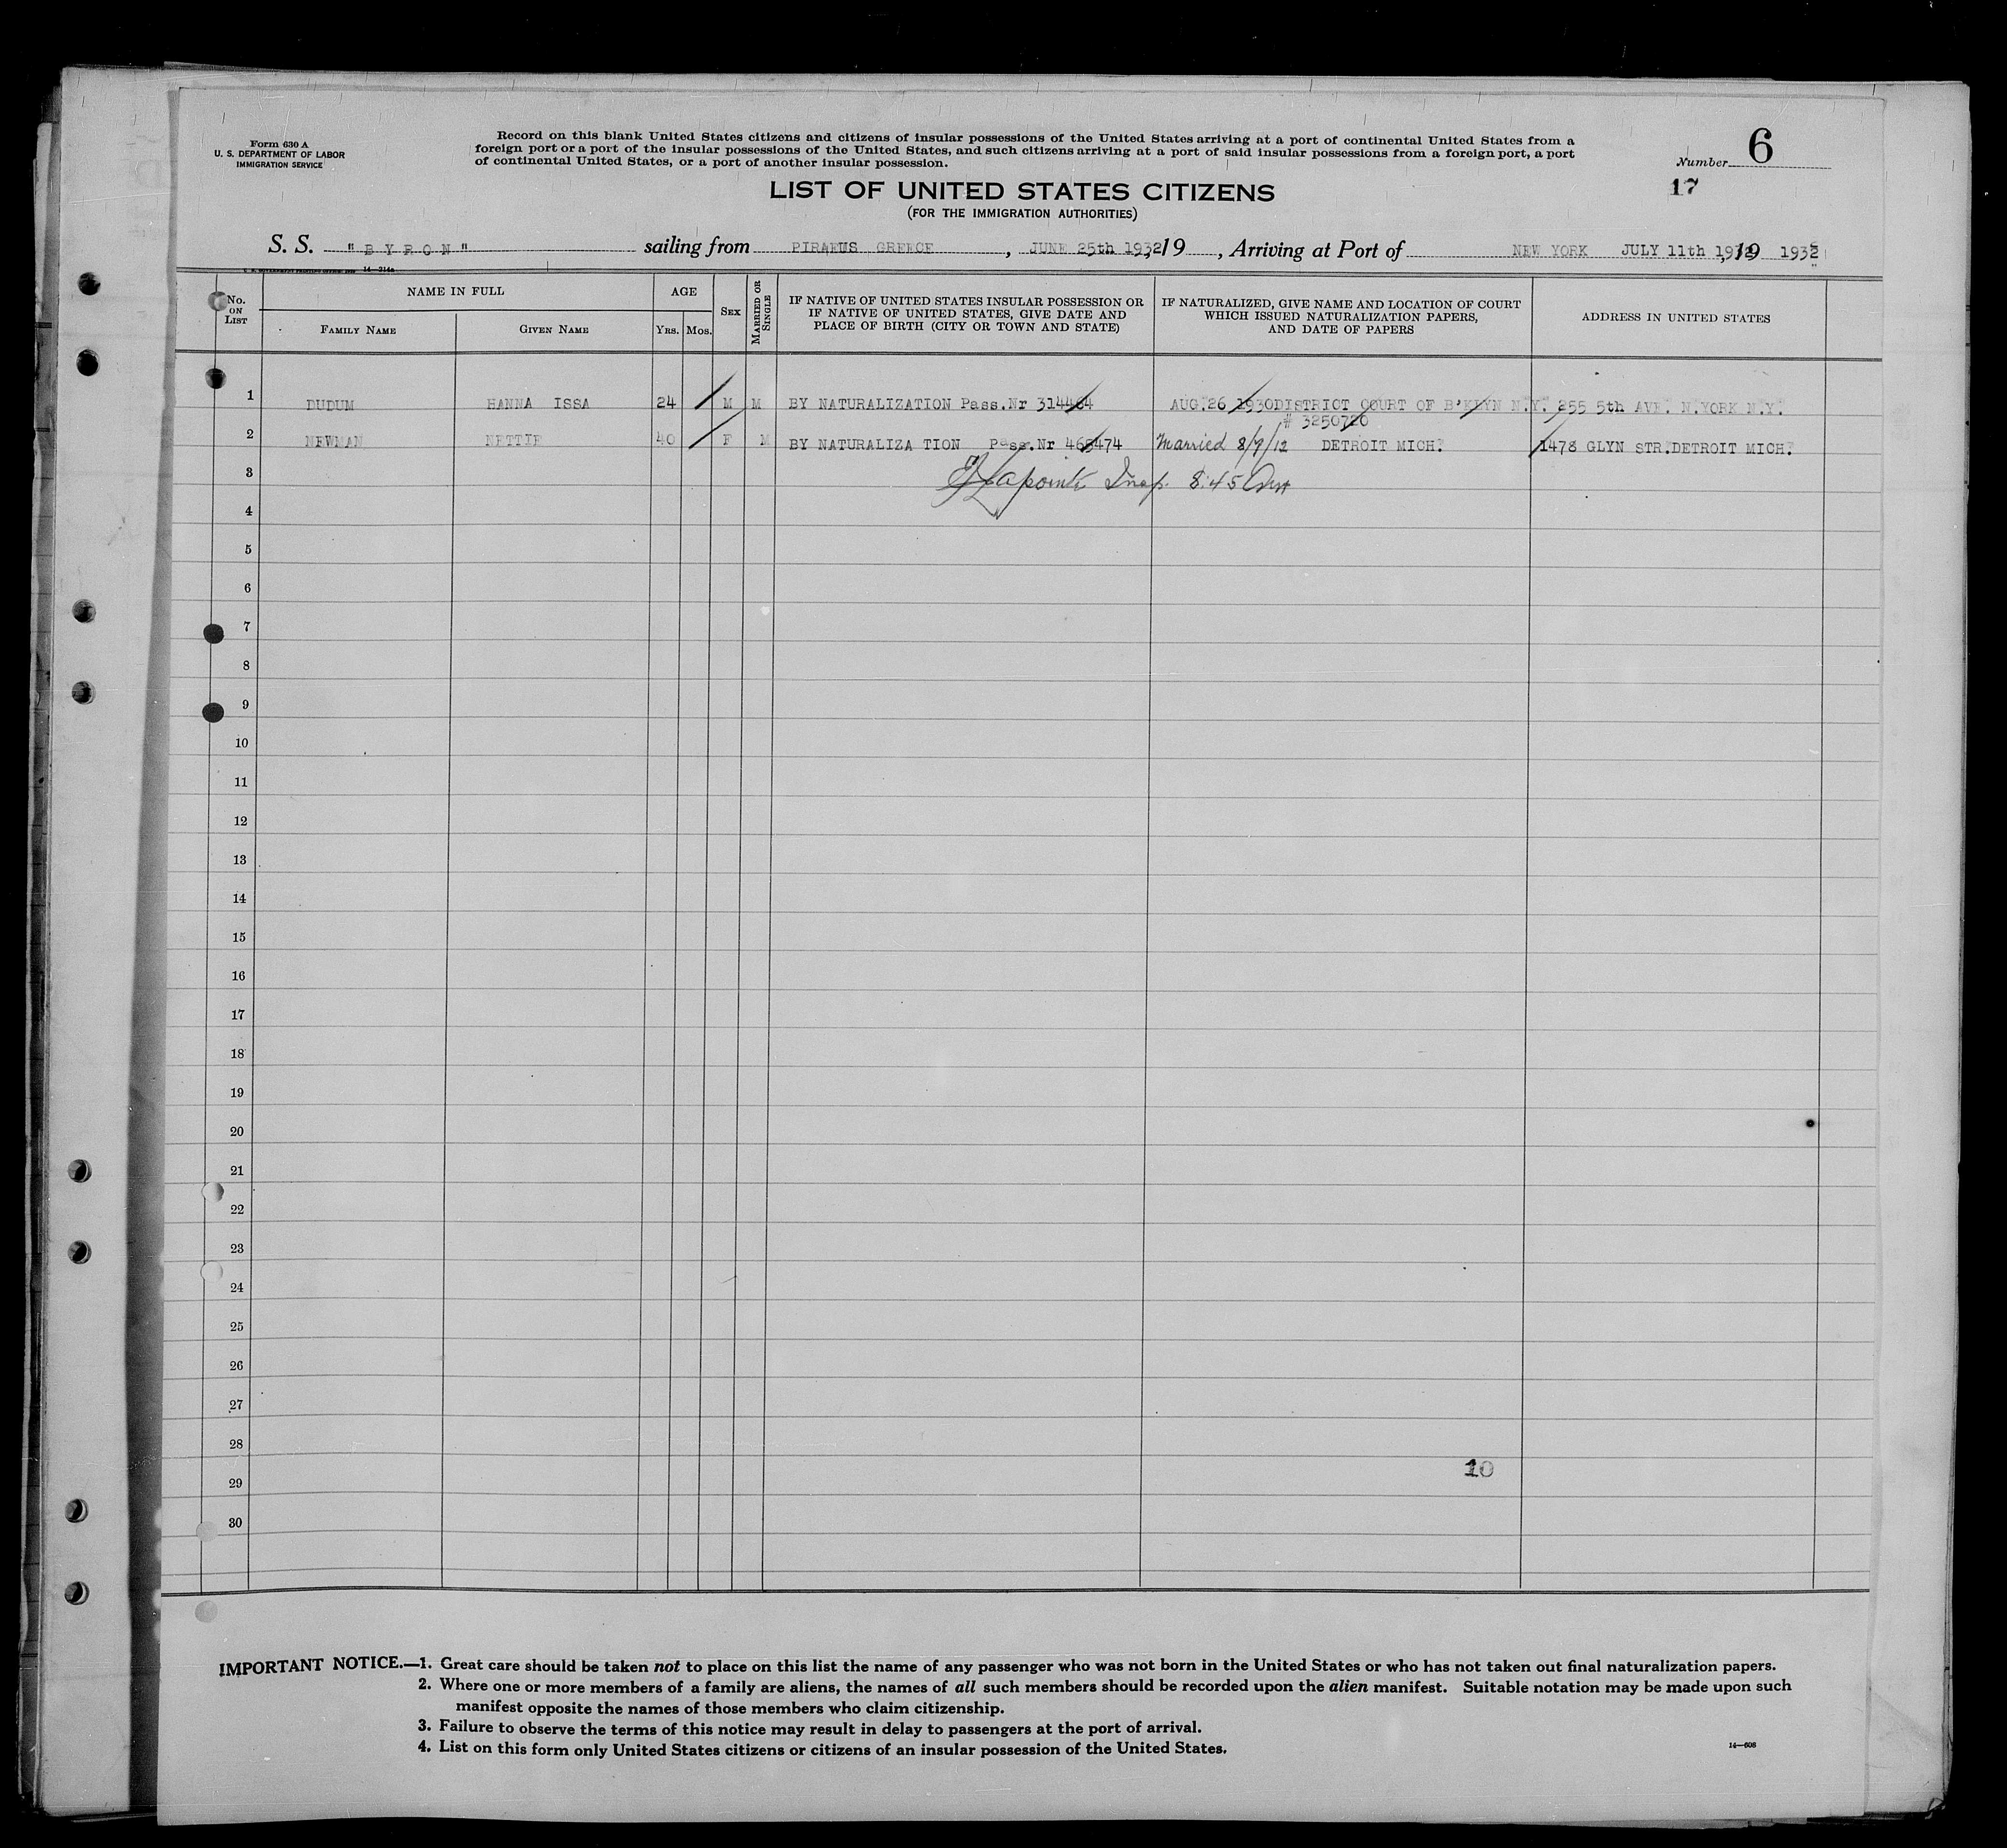 Form 630 A
U. S. DEPARTMENT OF LABOR
IMMIGRATION SERVICE
Record on this blank United States citizens and citizens of insular possessions of the United States arriving at a port of continental United States from a
foreign port or a port of the insular possessions of the United States, and such citizens arriving at a port of said insular possessions from a foreign port, a port
of continental United States, or a port of another insular possession.
Number 6
17
LIST OF UNITED STATES CITIZENS
(FOR THE IMMIGRATION AUTHORITIES)
S. S. "BYRON" sailing from PIRAEUS GREECE, JUNE 25th 1932, 19, Arriving at Port of NEW YORK JULY 11th 1932, 19 1932
No. ON LIST
NAME IN FULL
FAMILY NAME
GIVEN NAME
AGE
YRS.
MOS.
SEX
MARRIED OR SINGLE
IF NATIVE OF UNITED STATES INSULAR POSSESSION OR
IF NATIVE OF UNITED STATES, GIVE DATE AND
PLACE OF BIRTH (CITY OR TOWN AND STATE)
IF NATURALIZED, GIVE NAME AND LOCATION OF COURT
WHICH ISSUED NATURALIZATION PAPERS,
AND DATE OF PAPERS
ADDRESS IN UNITED STATES
1 DUDUM HANNA ISSA 24 M M BY NATURALIZATION Pass.Nr 314464 AUG.26 1930DISTRICT COURT OF B'KLYN N.Y. 255 5th AVE. N.YORK N.Y.
# 3250720
2 NEWMAN NETTIE 40 F M BY NATURALIZA TION Pass.Nr 468474 Married 8/9/12 DETROIT MICH. 1478 GLYN STR.DETROIT MICH.
3 Lapointe Insp. 8:45
4
5
6
7
8
9
10
11
12
13
14
15
16
17
18
19
20
21
22
23
24
25
26
27
28
10
29
30
IMPORTANT NOTICE.—1. Great care should be taken not to place on this list the name of any passenger who was not born in the United States or who has not taken out final naturalization papers.
2. Where one or more members of a family are aliens, the names of all such members should be recorded upon the alien manifest. Suitable notation may be made upon such
manifest opposite the names of those members who claim citizenship.
3. Failure to observe the terms of this notice may result in delay to passengers at the port of arrival.
4. List on this form only United States citizens or citizens of an insular possession of the United States.
14—608